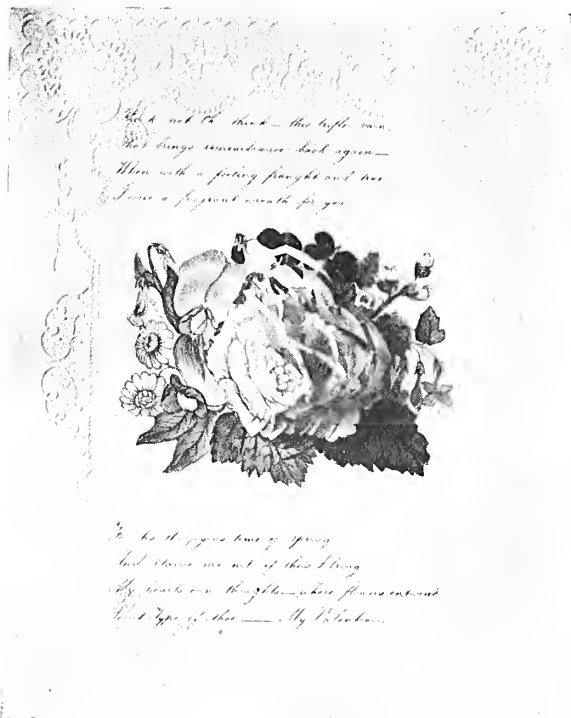 Think not Oh think — this trifle vain
That brings remembrance back again —
When with a feeling fraught and true
I wove a fragrant wreath for you
the joyous time of Spring
And blame me not if thus I bring
My heart's own thoughts — where flowers entwined
Type of thee — My Valentine